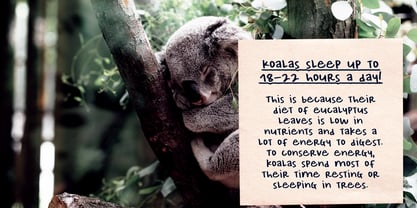 KOALAS SLEEP UP TO
18-22 HOURS A DAY!
THIS IS BECAUSE THEIR
DIET OF EUCALYPTUS
LEAVES IS LOW IN
NUTRIENTS AND TAKES A
LOT OF ENERGY TO DIGEST.
TO CONSERVE ENERGY,
KOALAS SPEND MOST OF
THEIR TIME RESTING OR
SLEEPING IN TREES.